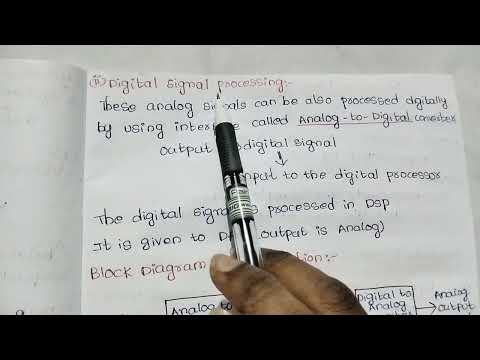 (ii) Digital signal processing:-
These analog signals can be also processed digitally
by using interface called Analog-to-Digital converter
Output digital signal
↓
input to the digital processor
The digital signal is processed in DSP
It is given to output is Analog)
BLOCK Diagram :-
Analog to
Digital to
Analog
Analog
output